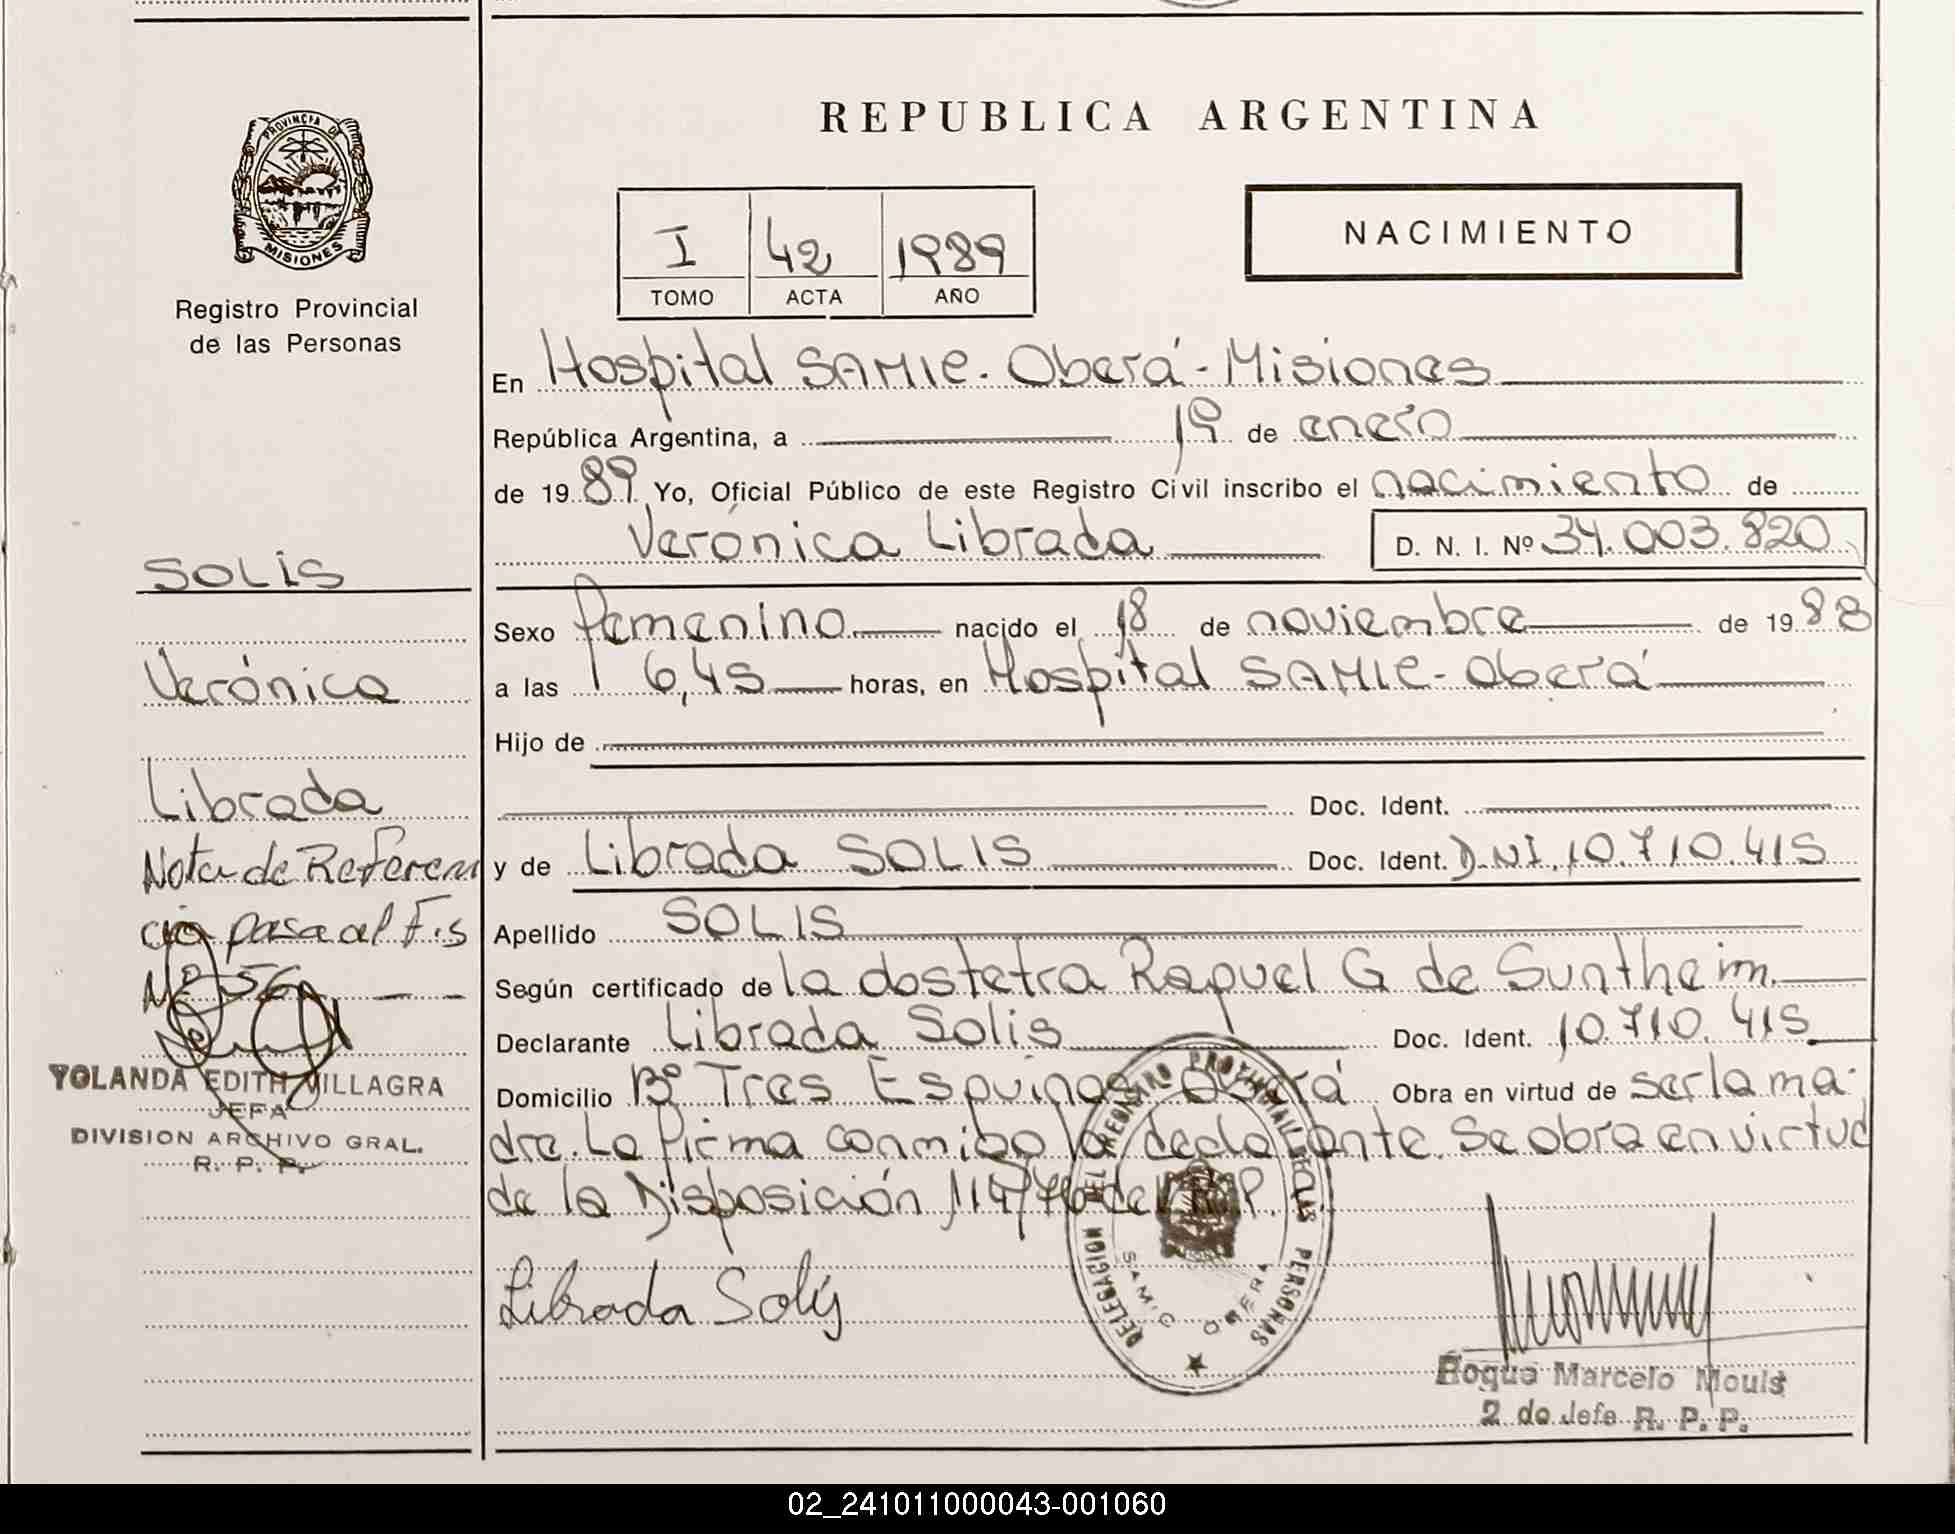 REPUBLICA ARGENTINA
PROVINCIA DE
MISIONES
Registro Provincial
de las Personas
I 42 1989
TOMO ACTA AÑO
NACIMIENTO
En Hospital SAMIC. Oberá - Misiones
República Argentina, a 19 de enero
de 1989 Yo, Oficial Público de este Registro Civil inscribo el nacimiento de
Verónica Librada D. N. I. Nº 34.003.820
Sexo femenino nacido el 18 de noviembre de 1988
a las 6,45 horas, en Hospital SAMIC - Oberá
Hijo de
Doc. Ident.
y de Librada SOLIS Doc. Ident. D.NI. 10.710.415
Apellido SOLIS
Según certificado de la dostetra Raquel G de Suntheim.
Declarante Librada Solis Doc. Ident. 10.710.415
Domicilio Bº Tres Esquinas Oberá Obra en virtud de ser la ma-
dre. La firma conmigo la declarante. Se obra en virtud
de la Disposición 114/76 del R.P.P.
Librada Solis
SOLIS
Verónica
Librada
Nota de Referen
cia pasa al F.s
Nº 56
YOLANDA EDITH VILLAGRA
JEFA
DIVISION ARCHIVO GRAL.
R. P. P.
DELEGACION DEL REGISTRO PROVINCIAL DE LAS PERSONAS
SAMIC OBERA
Roque Marcelo Mouls
2 do Jefe R. P. P.
02_241011000043-001060